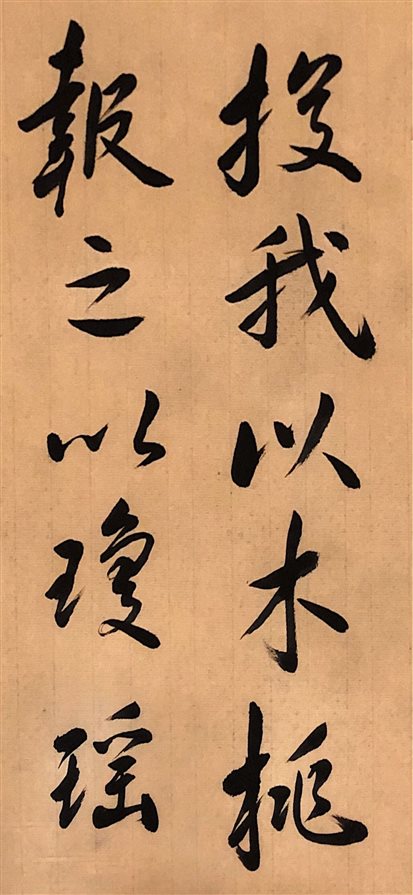 投我以木桃
報之以瓊瑶